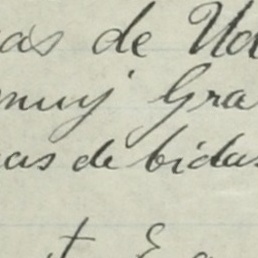 as de Ud
muy Gra
as debidas